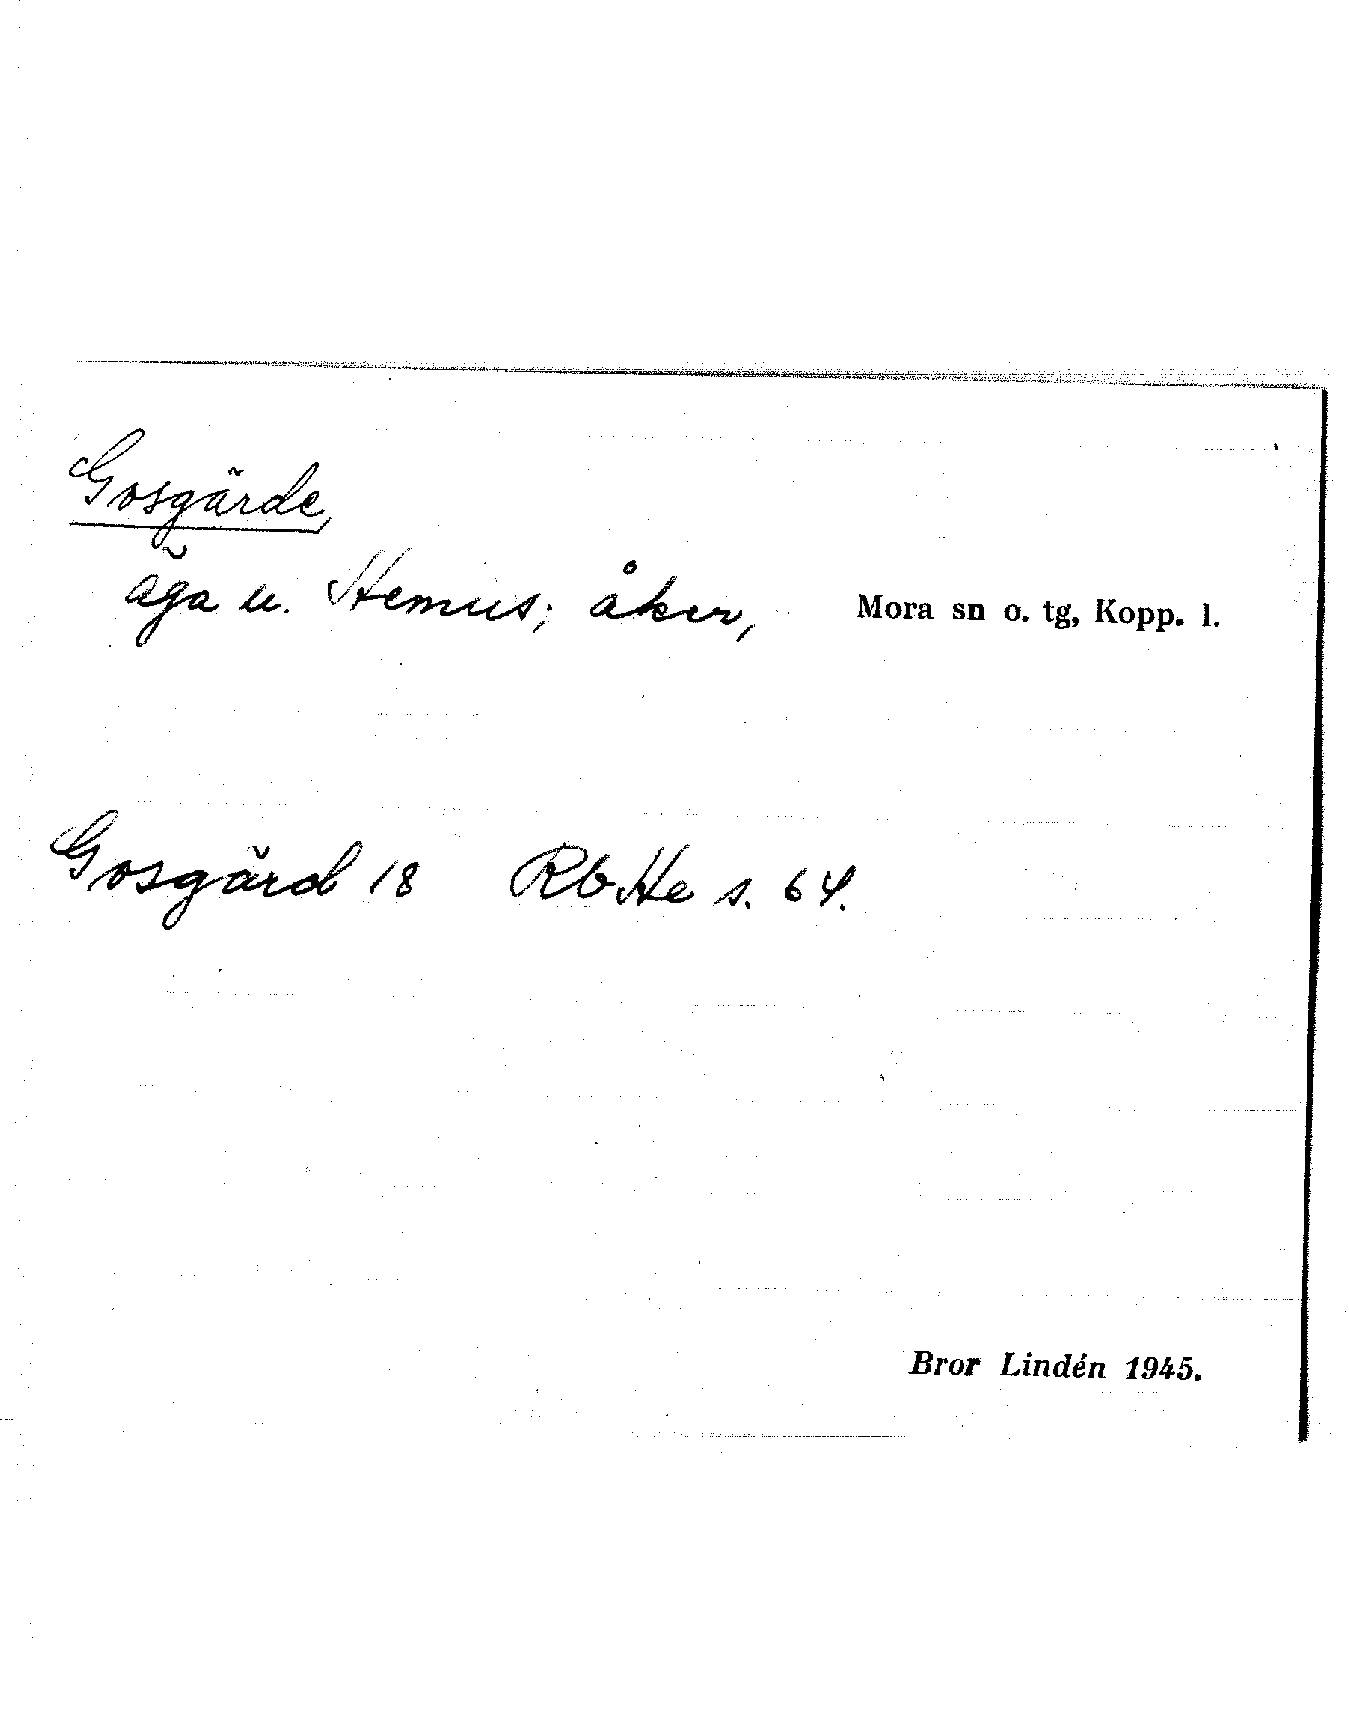 Gosgärde,
äga u. Hemus; åker, Mora sn o. tg, Kopp. l.
Gosgärd 18 RbHe s. 64.
Bror Lindén 1945.